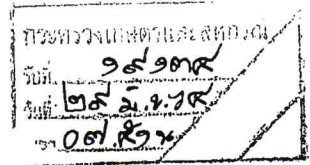 กระทรวงเกษตรและสหกรณ์
รับที่ ๑๙๑๓๕
วันที่ ๒๙ มี.ย.๖๔
เวลา ๐๗.๕๑ น